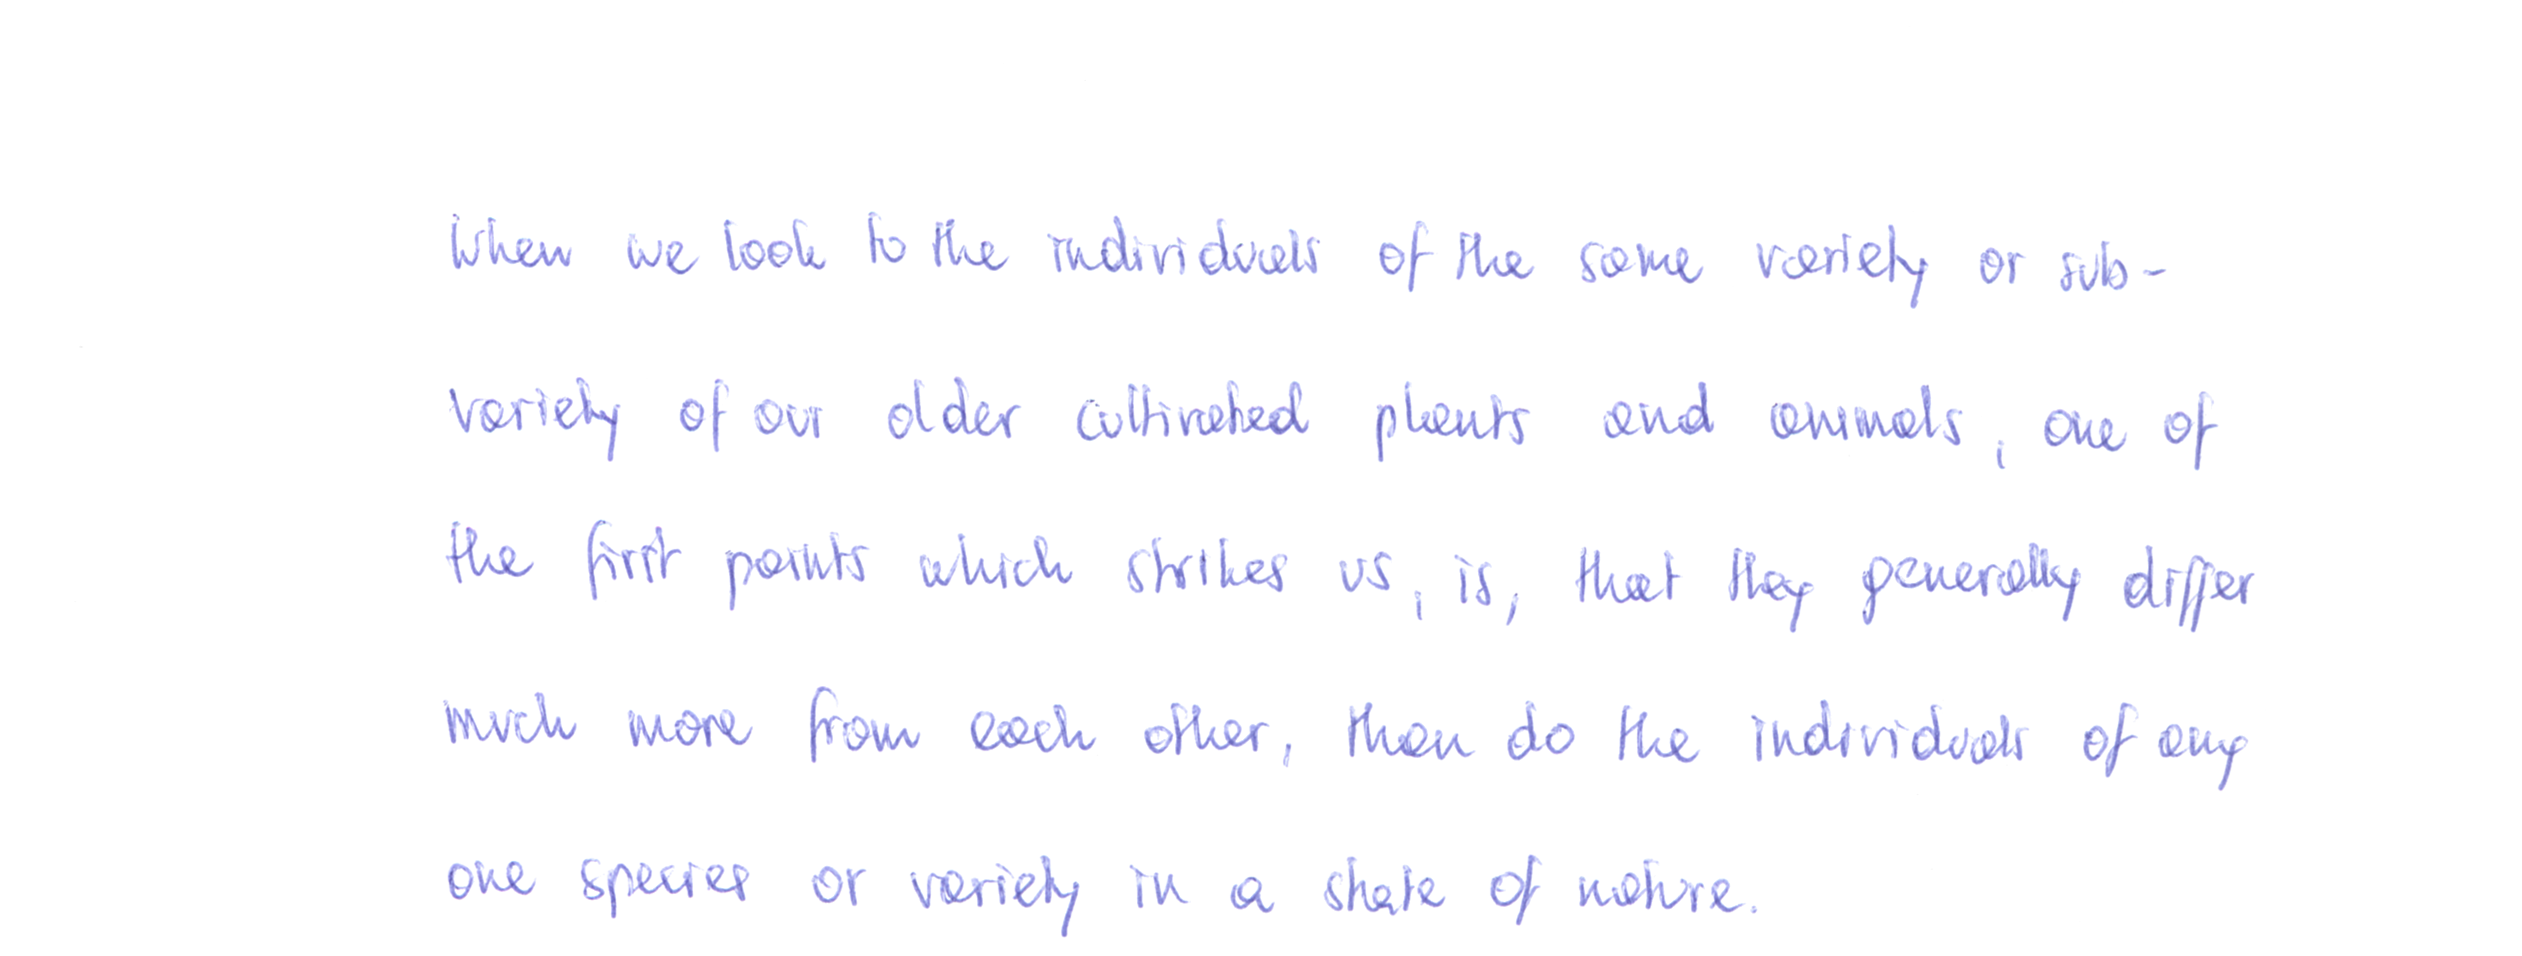 When we look to the individuals of the same variety or sub-
variety of our older cultivated plants and animals, one of
the first points which strikes us, is, that they generally differ
much more from each other, than do the individuals of any
one species or variety in a state of nature.